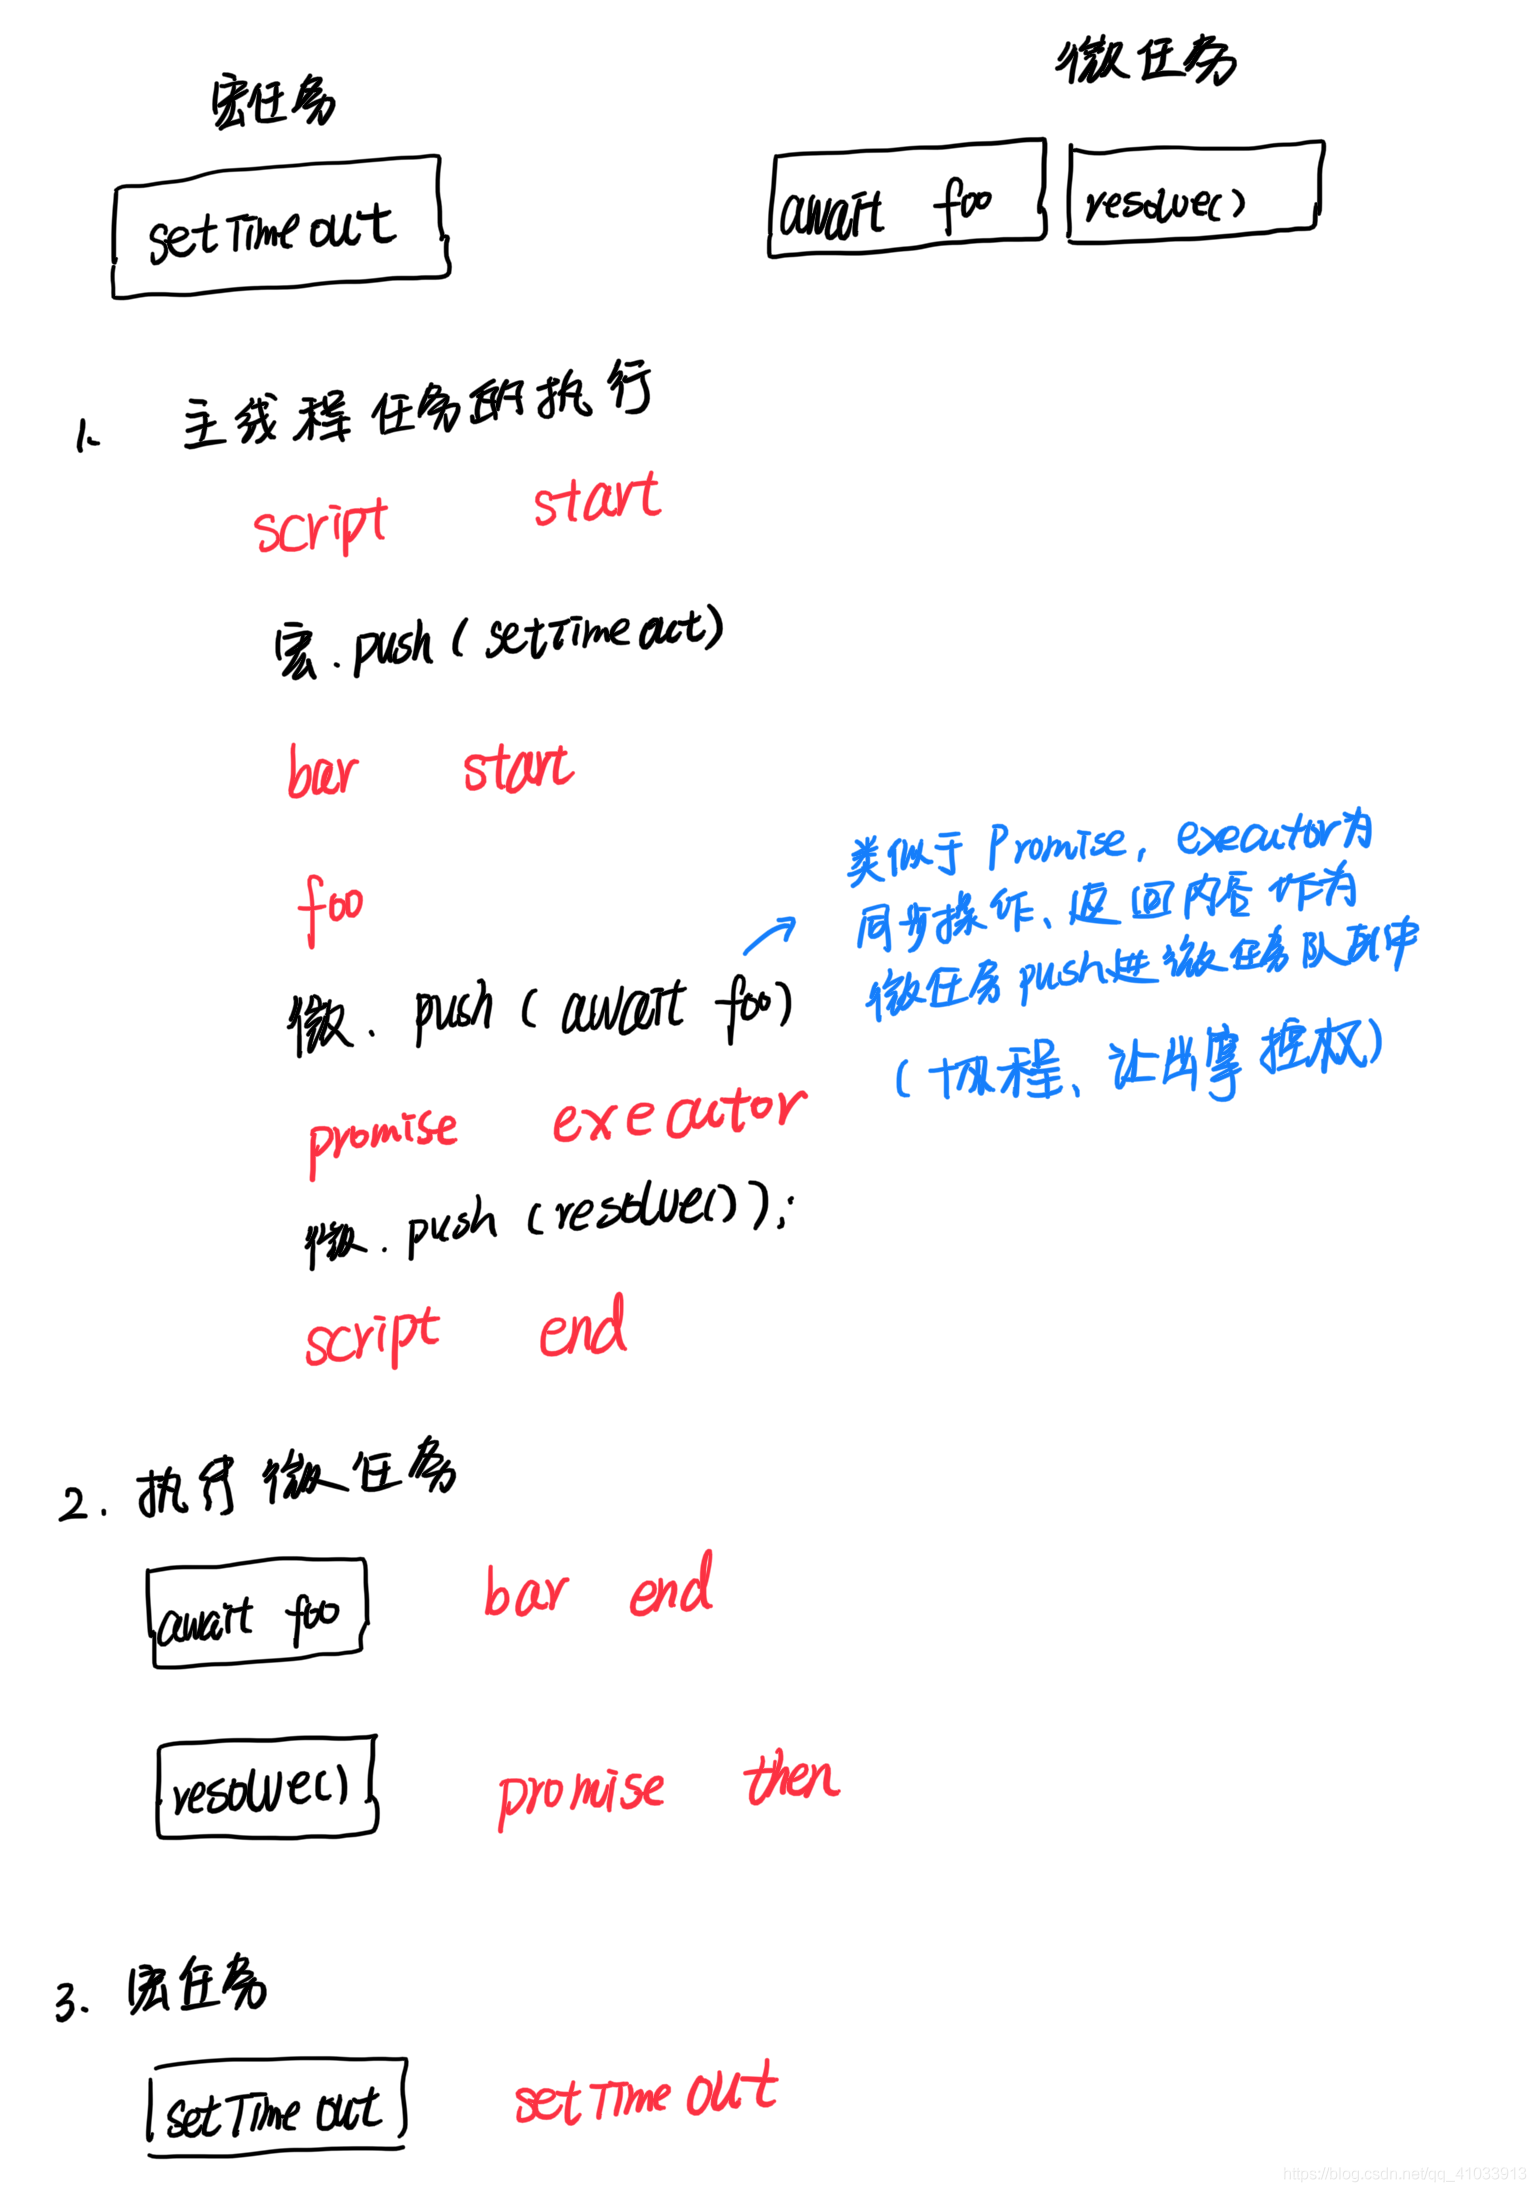 宏任务
微任务
setTimeout
await foo
resolve()
1. 主线程任务的执行
script start
宏.push(setTimeout)
bar start
foo
类似于Promise, executor为
同步操作、返回内容作为
微任务push进微任务队列中
(协程、让出掌控权)
微.push(await foo)
promise executor
微.push(resolve());
script end
2. 执行微任务
await foo
bar end
resolve()
promise then
3. 宏任务
setTimeout
setTimeout
https://blog.csdn.net/qq_41033913